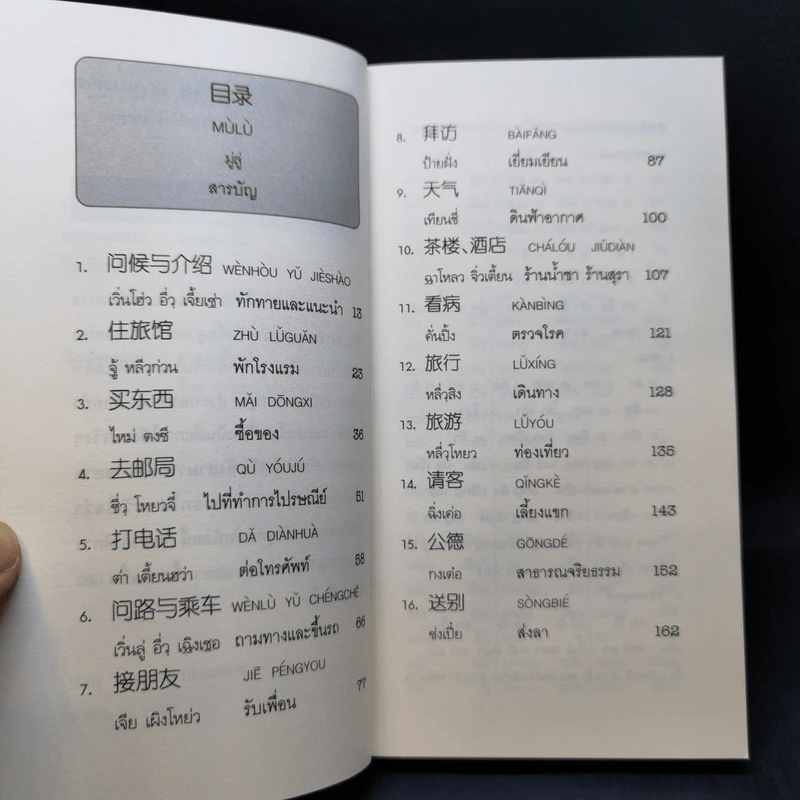 目录
MÙLÙ
มู่ลู่
สารบัญ
1. 问候与介绍 WÈNHÒU YŬ JIÈSHÀO
เวิ่นโฮ่ว อี่ว เจี้ยเซ่า ทักทายและแนะนำ 13
2. 住旅馆 ZHÙ LŬGUĂN
จู้ หลี่วก่วน พักโรงแรม 23
3. 买东西 MĂI DŌNGXI
ไหม่ ตงซี ซื้อของ 36
4. 去邮局 QÙ YÓUJÚ
ชี่ว โหยวจี๋ ไปที่ทำการไปรษณีย์ 51
5. 打电话 DĂ DIÀNHUÀ
ต่า เตี้ยนฮว่า ต่อโทรศัพท์ 58
6. 问路与乘车 WÈNLÙ YŬ CHÉNGCHĒ
เวิ่นลู่ อี่ว เฉิงเชอ ถามทางและขึ้นรถ 66
7. 接朋友 JIĒ PÉNGYOU
เจีย เผิงโหย่ว รับเพื่อน 77
8. 拜访 BÀIFĂNG
ป้ายฝั่ง เยี่ยมเยียน 87
9. 天气 TIĀNQÌ
เทียนชี่ ดินฟ้าอากาศ 100
10. 茶楼、酒店 CHÁLÓU JIŬDIÀN
ฉาโหลว จิ่วเตี้ยน ร้านน้ำชา ร้านสุรา 107
11. 看病 KÀNBÌNG
คั่นปิ้ง ตรวจโรค 121
12. 旅行 LŬXÍNG
หลี่วสิง เดินทาง 128
13. 旅游 LŬYÓU
หลี่วโหยว ท่องเที่ยว 135
14. 请客 QĬNGKÈ
ฉิ่งเค่อ เลี้ยงแขก 143
15. 公德 GŌNGDÉ
กงเต๋อ สาธารณจริยธรรม 152
16. 送别 SÒNGBIÉ
ซ่งเปี๋ย ส่งลา 162